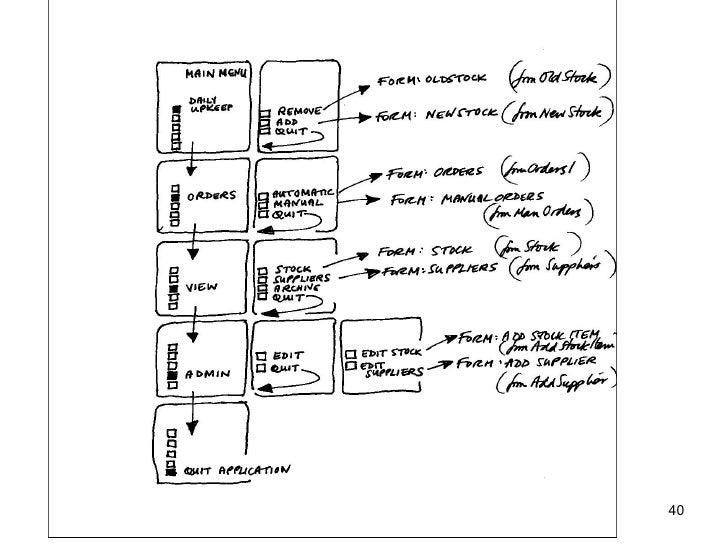 MAIN MENU
DAILY
UPKEEP
REMOVE
ADD
QUIT
FORM: OLDSTOCK (frm Old Stock)
FORM: NEWSTOCK (frm New Stock)
ORDERS
AUTOMATIC
MANUAL
QUIT
FORM: ORDERS (frm Orders1)
FORM: MANUAL ORDERS
(frm Man Orders)
VIEW
STOCK
SUPPLIERS
ARCHIVE
QUIT
FORM: STOCK (frm Stock)
FORM: SUPPLIERS (frm Suppliers)
ADMIN
EDIT
QUIT
EDIT STOCK
EDIT
SUPPLIERS
FORM: ADD STOCK ITEM
(frm Add Stock Item
FORM: ADD SUPPLIER
(frm Add Supplier)
QUIT APPLICATION
40